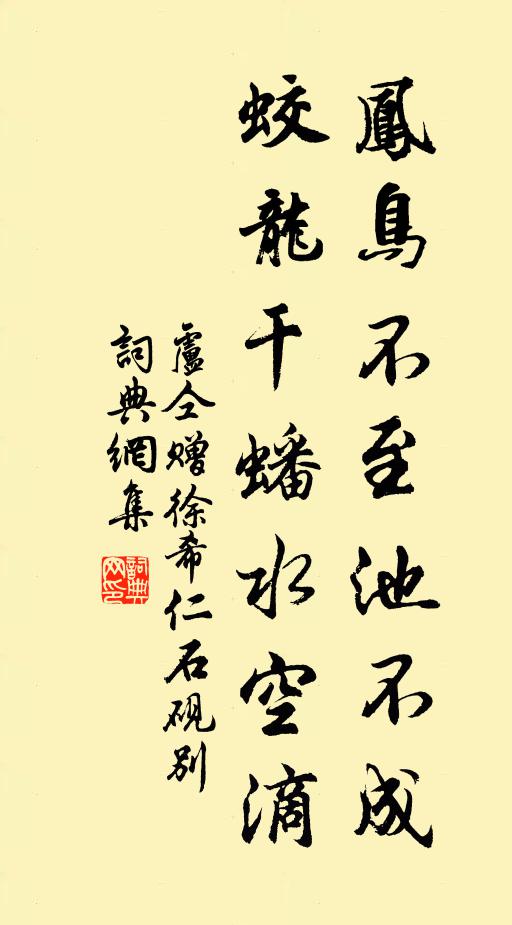 鳳鳥不至池不成
蛟龍干蟠水空滴
盧仝贈徐希仁石硯別
詞典網集
詞典
网印